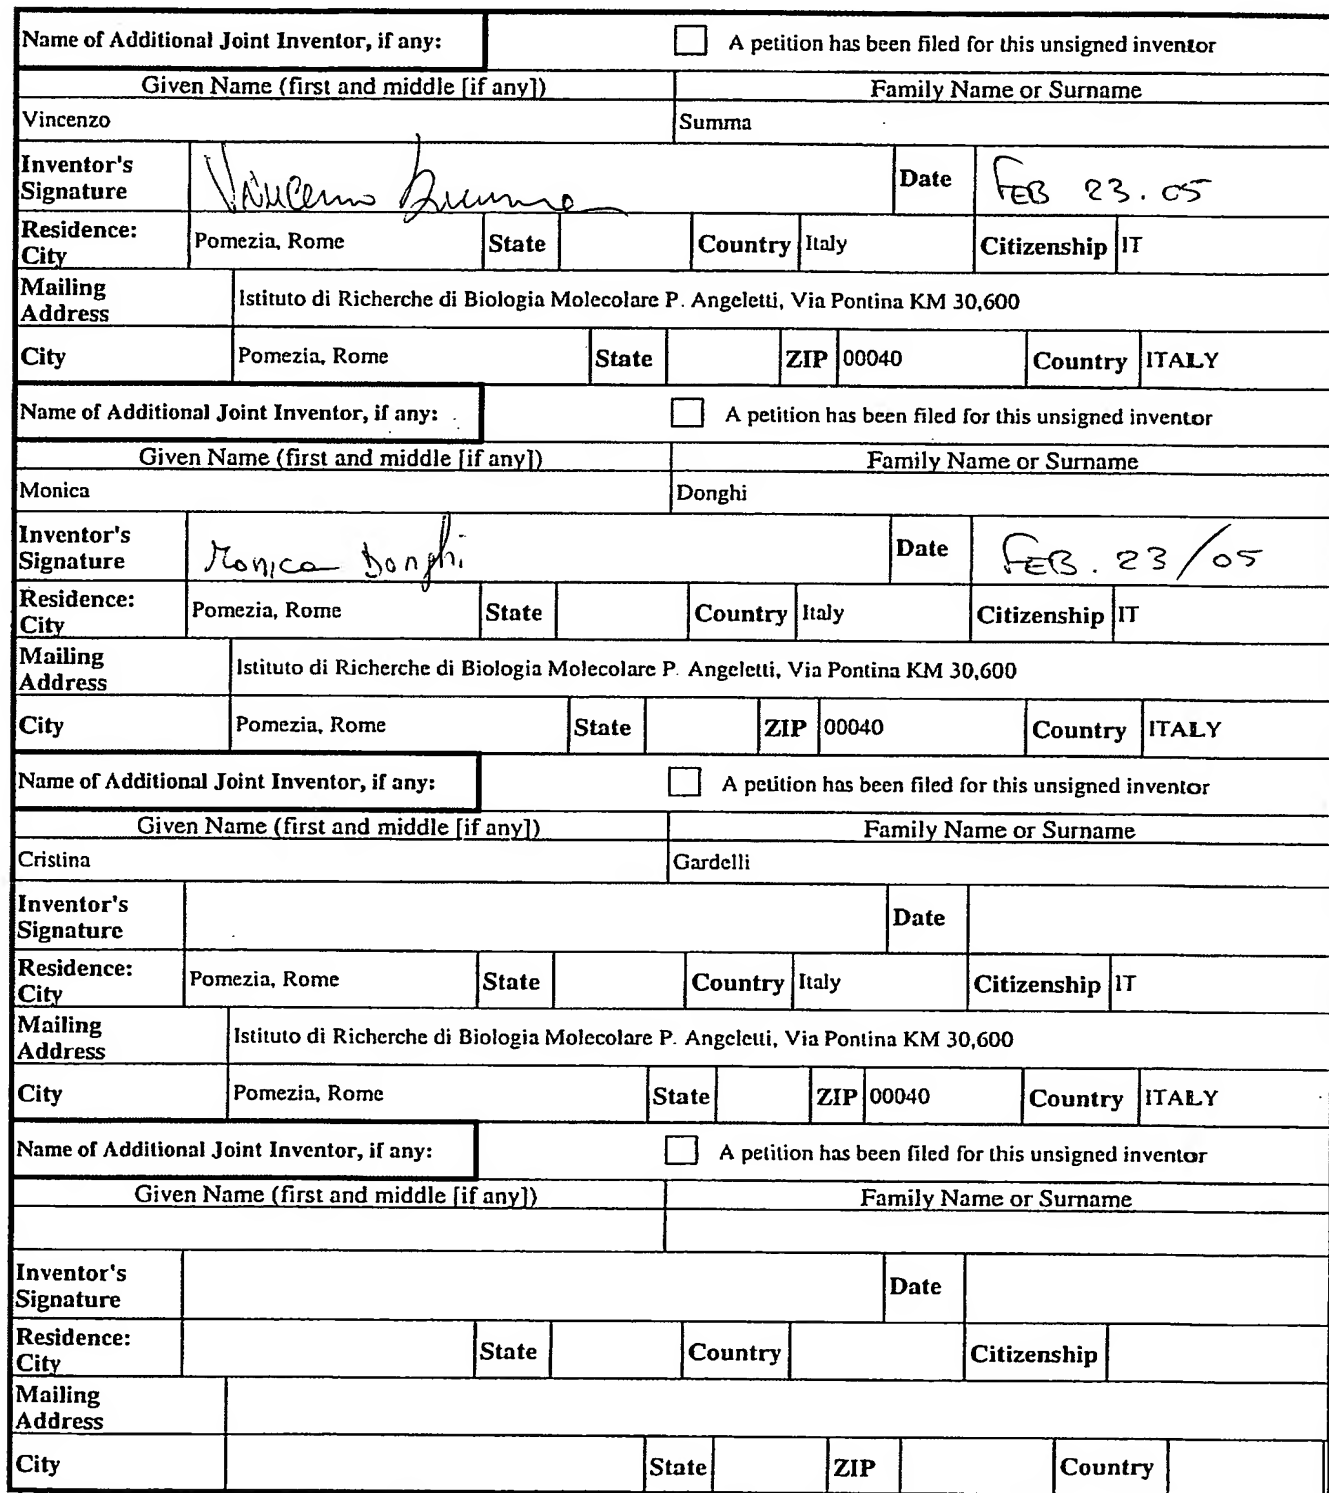 Name of Additional Joint Inventor, if any: A petition has been filed for this unsigned inventor
Given Name (first and middle [if any]) Family Name or Surname
Vincenzo Summa
Inventor's Signature Vincenzo Summa Date FEB 23.05
Residence: City Pomezia, Rome State Country Italy Citizenship IT
Mailing Address Istituto di Richerche di Biologia Molecolare P. Angeletti, Via Pontina KM 30,600
City Pomezia, Rome State ZIP 00040 Country ITALY
Name of Additional Joint Inventor, if any: A petition has been filed for this unsigned inventor
Given Name (first and middle [if any]) Family Name or Surname
Monica Donghi
Inventor's Signature Monica Donghi Date FEB. 23/05
Residence: City Pomezia, Rome State Country Italy Citizenship IT
Mailing Address Istituto di Richerche di Biologia Molecolare P. Angeletti, Via Pontina KM 30,600
City Pomezia, Rome State ZIP 00040 Country ITALY
Name of Additional Joint Inventor, if any: A petition has been filed for this unsigned inventor
Given Name (first and middle [if any]) Family Name or Surname
Cristina Gardelli
Inventor's Signature Date
Residence: City Pomezia, Rome State Country Italy Citizenship IT
Mailing Address Istituto di Richerche di Biologia Molecolare P. Angeletti, Via Pontina KM 30,600
City Pomezia, Rome State ZIP 00040 Country ITALY
Name of Additional Joint Inventor, if any: A petition has been filed for this unsigned inventor
Given Name (first and middle [if any]) Family Name or Surname
Inventor's Signature Date
Residence: City State Country Citizenship
Mailing Address
City State ZIP Country